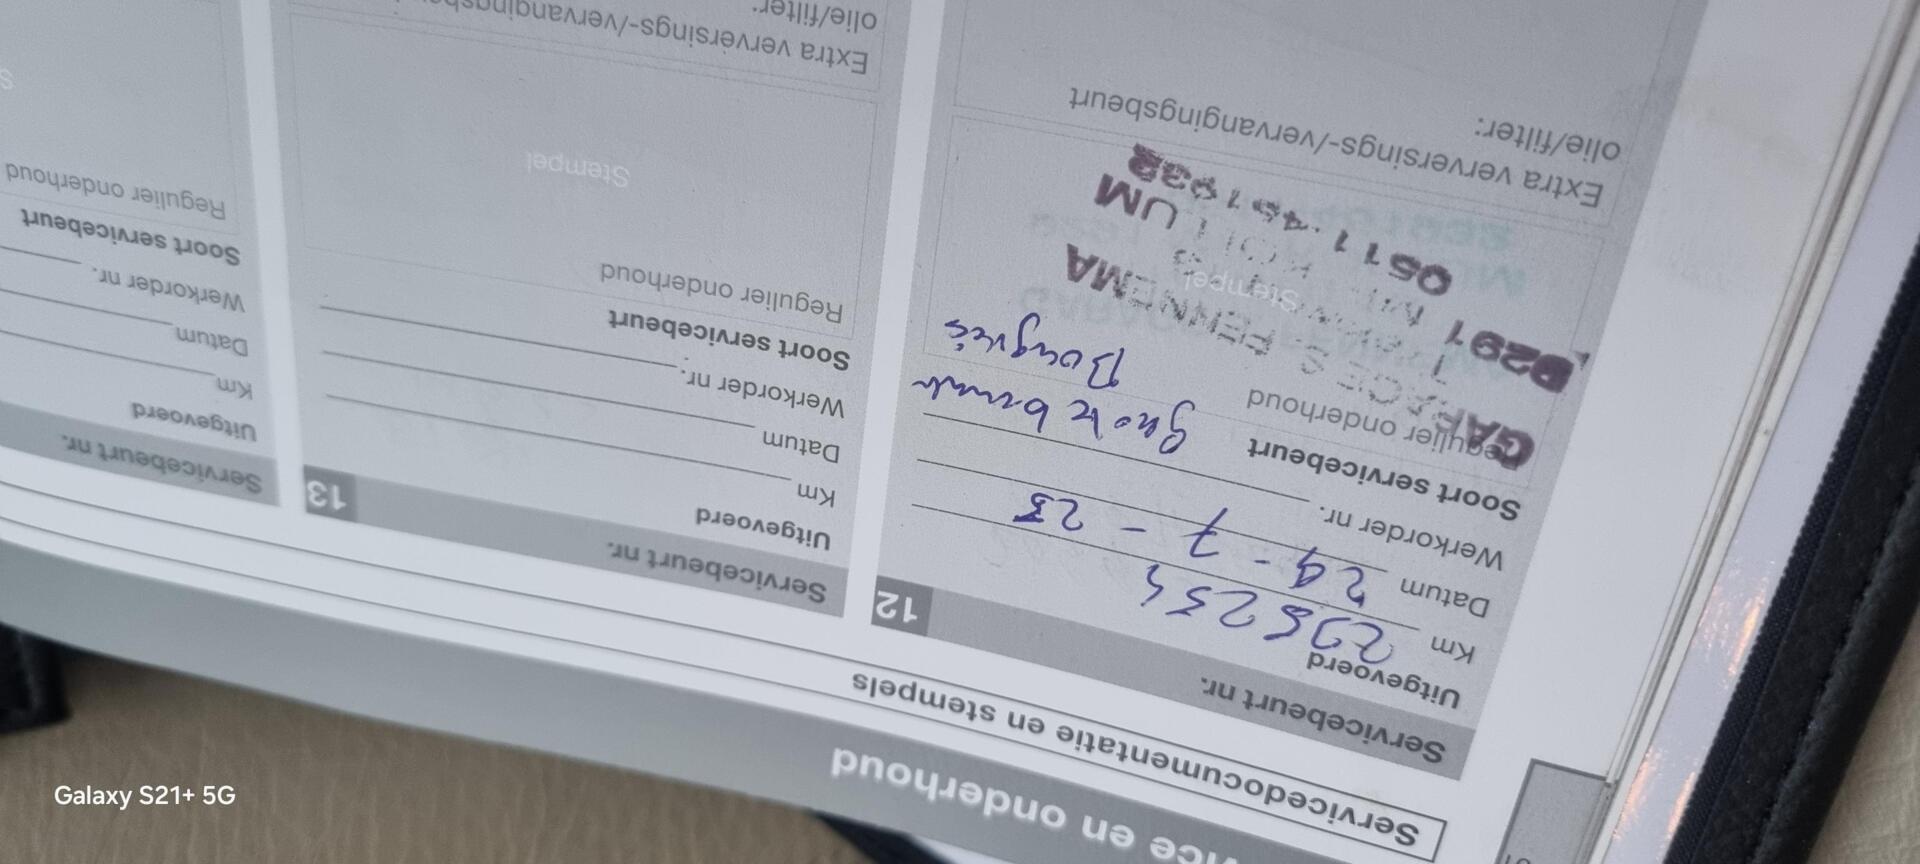 Service en onderhoud
Servicedocumentatie en stempels
Servicebeurt nr. 12
Uitgevoerd
Km
Datum 29 - 7 - 23
Werkorder nr.
Soort servicebeurt grote beurt
Regulier onderhoud Bougies
Stempel
GARAGE S. RENNEMA
0511-451932
Extra verversings-/vervangingsbeurt
olie/filter:
Servicebeurt nr. 13
Uitgevoerd
Km
Datum
Werkorder nr.
Soort servicebeurt
Regulier onderhoud
Stempel
Extra verversings-/vervangingsbeurt
olie/filter:
Servicebeurt nr.
Uitgevoerd
Km
Datum
Werkorder nr.
Soort servicebeurt
Regulier onderhoud
Galaxy S21+ 5G